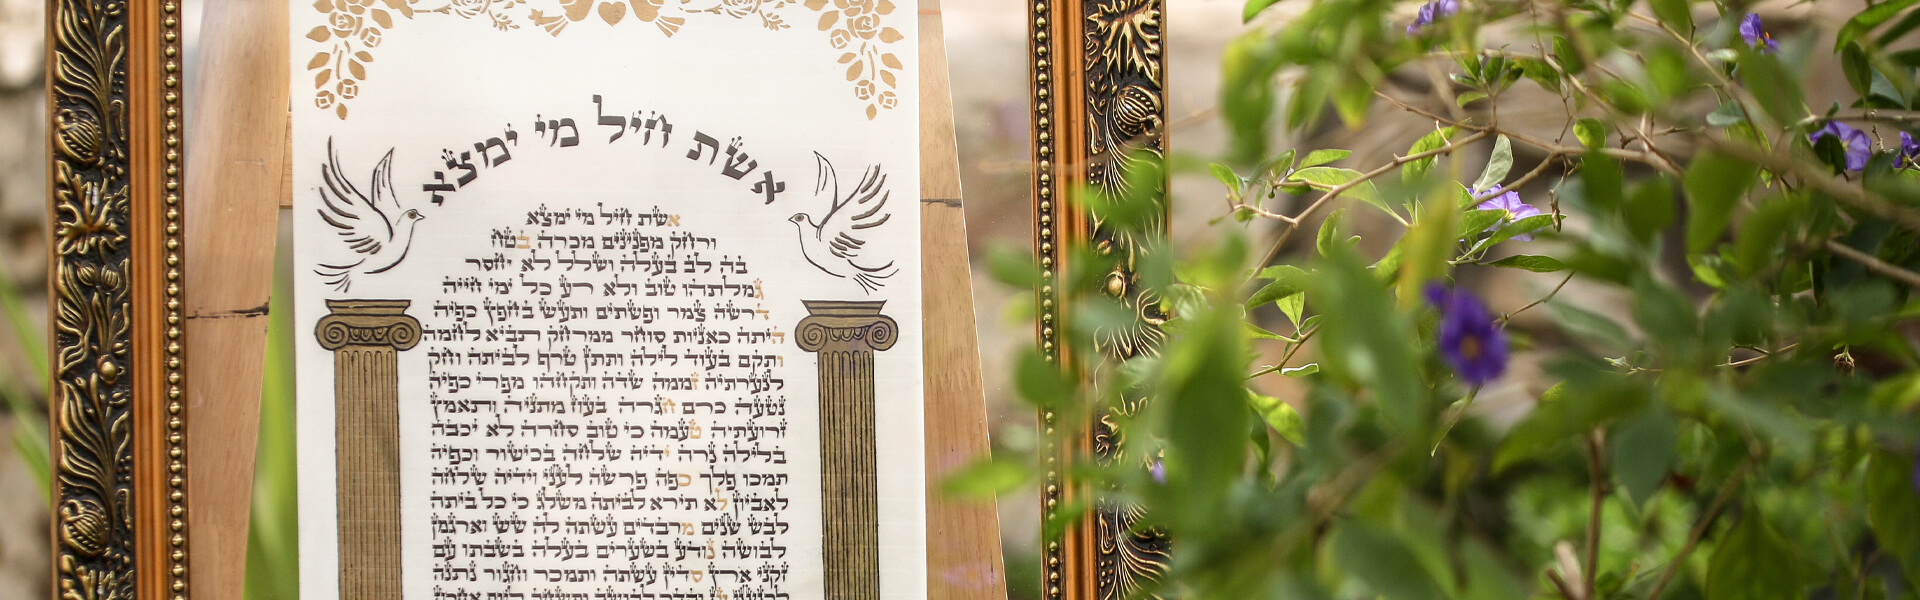 אשת חיל מי ימצא
אשת חיל מי ימצא
ורחק מפנינים מכרה בטח
בה לב בעלה ושלל לא יחסר
גמלתהו טוב ולא רע כל ימי חייה
דרשה צמר ופשתים ותעש בחפץ כפיה
היתה כאניות סוחר ממרחק תביא לחמה
ותקם בעוד לילה ותתן טרף לביתה וחק
לנערתיה זממה שדה ותקחהו מפרי כפיה
נטעה כרם חגרה בעוז מתניה ותאמץ
זרועתיה טעמה כי טוב סחרה לא יכבה
בלילה נרה ידיה שלחה בכישור וכפיה
תמכו פלך כפה פרשה לעני וידיה שלחה
לאביון לא תירא לביתה משלג כי כל ביתה
לבש שנים מרבדים עשתה לה שש וארגמן
לבושה נודע בשערים בעלה בשבתו עם
זקני ארץ סדין עשתה ותמכר וחגור נתנה